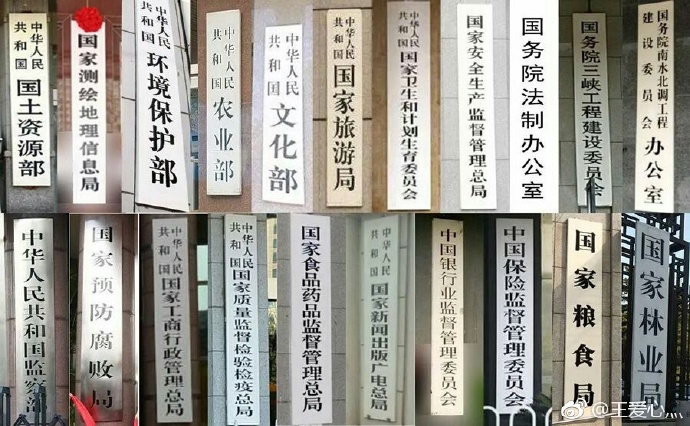 中华人民共和国国土资源部
国家测绘地理信息局
中华人民共和国环境保护部
中华人民共和国农业部
中华人民共和国文化部
中华人民共和国国家旅游局
中华人民共和国国家卫生和计划生育委员会
国家安全生产监督管理总局
国务院法制办公室
国务院三峡工程建设委员会
国务院南水北调工程建设委员会办公室
中华人民共和国监察部
国家预防腐败局
中华人民共和国国家工商行政管理总局
中华人民共和国国家质量监督检验检疫总局
国家食品药品监督管理总局
中华人民共和国国家新闻出版广电总局
中国银行业监督管理委员会
中国保险监督管理委员会
国家粮食局
国家林业局
@王爱心灬